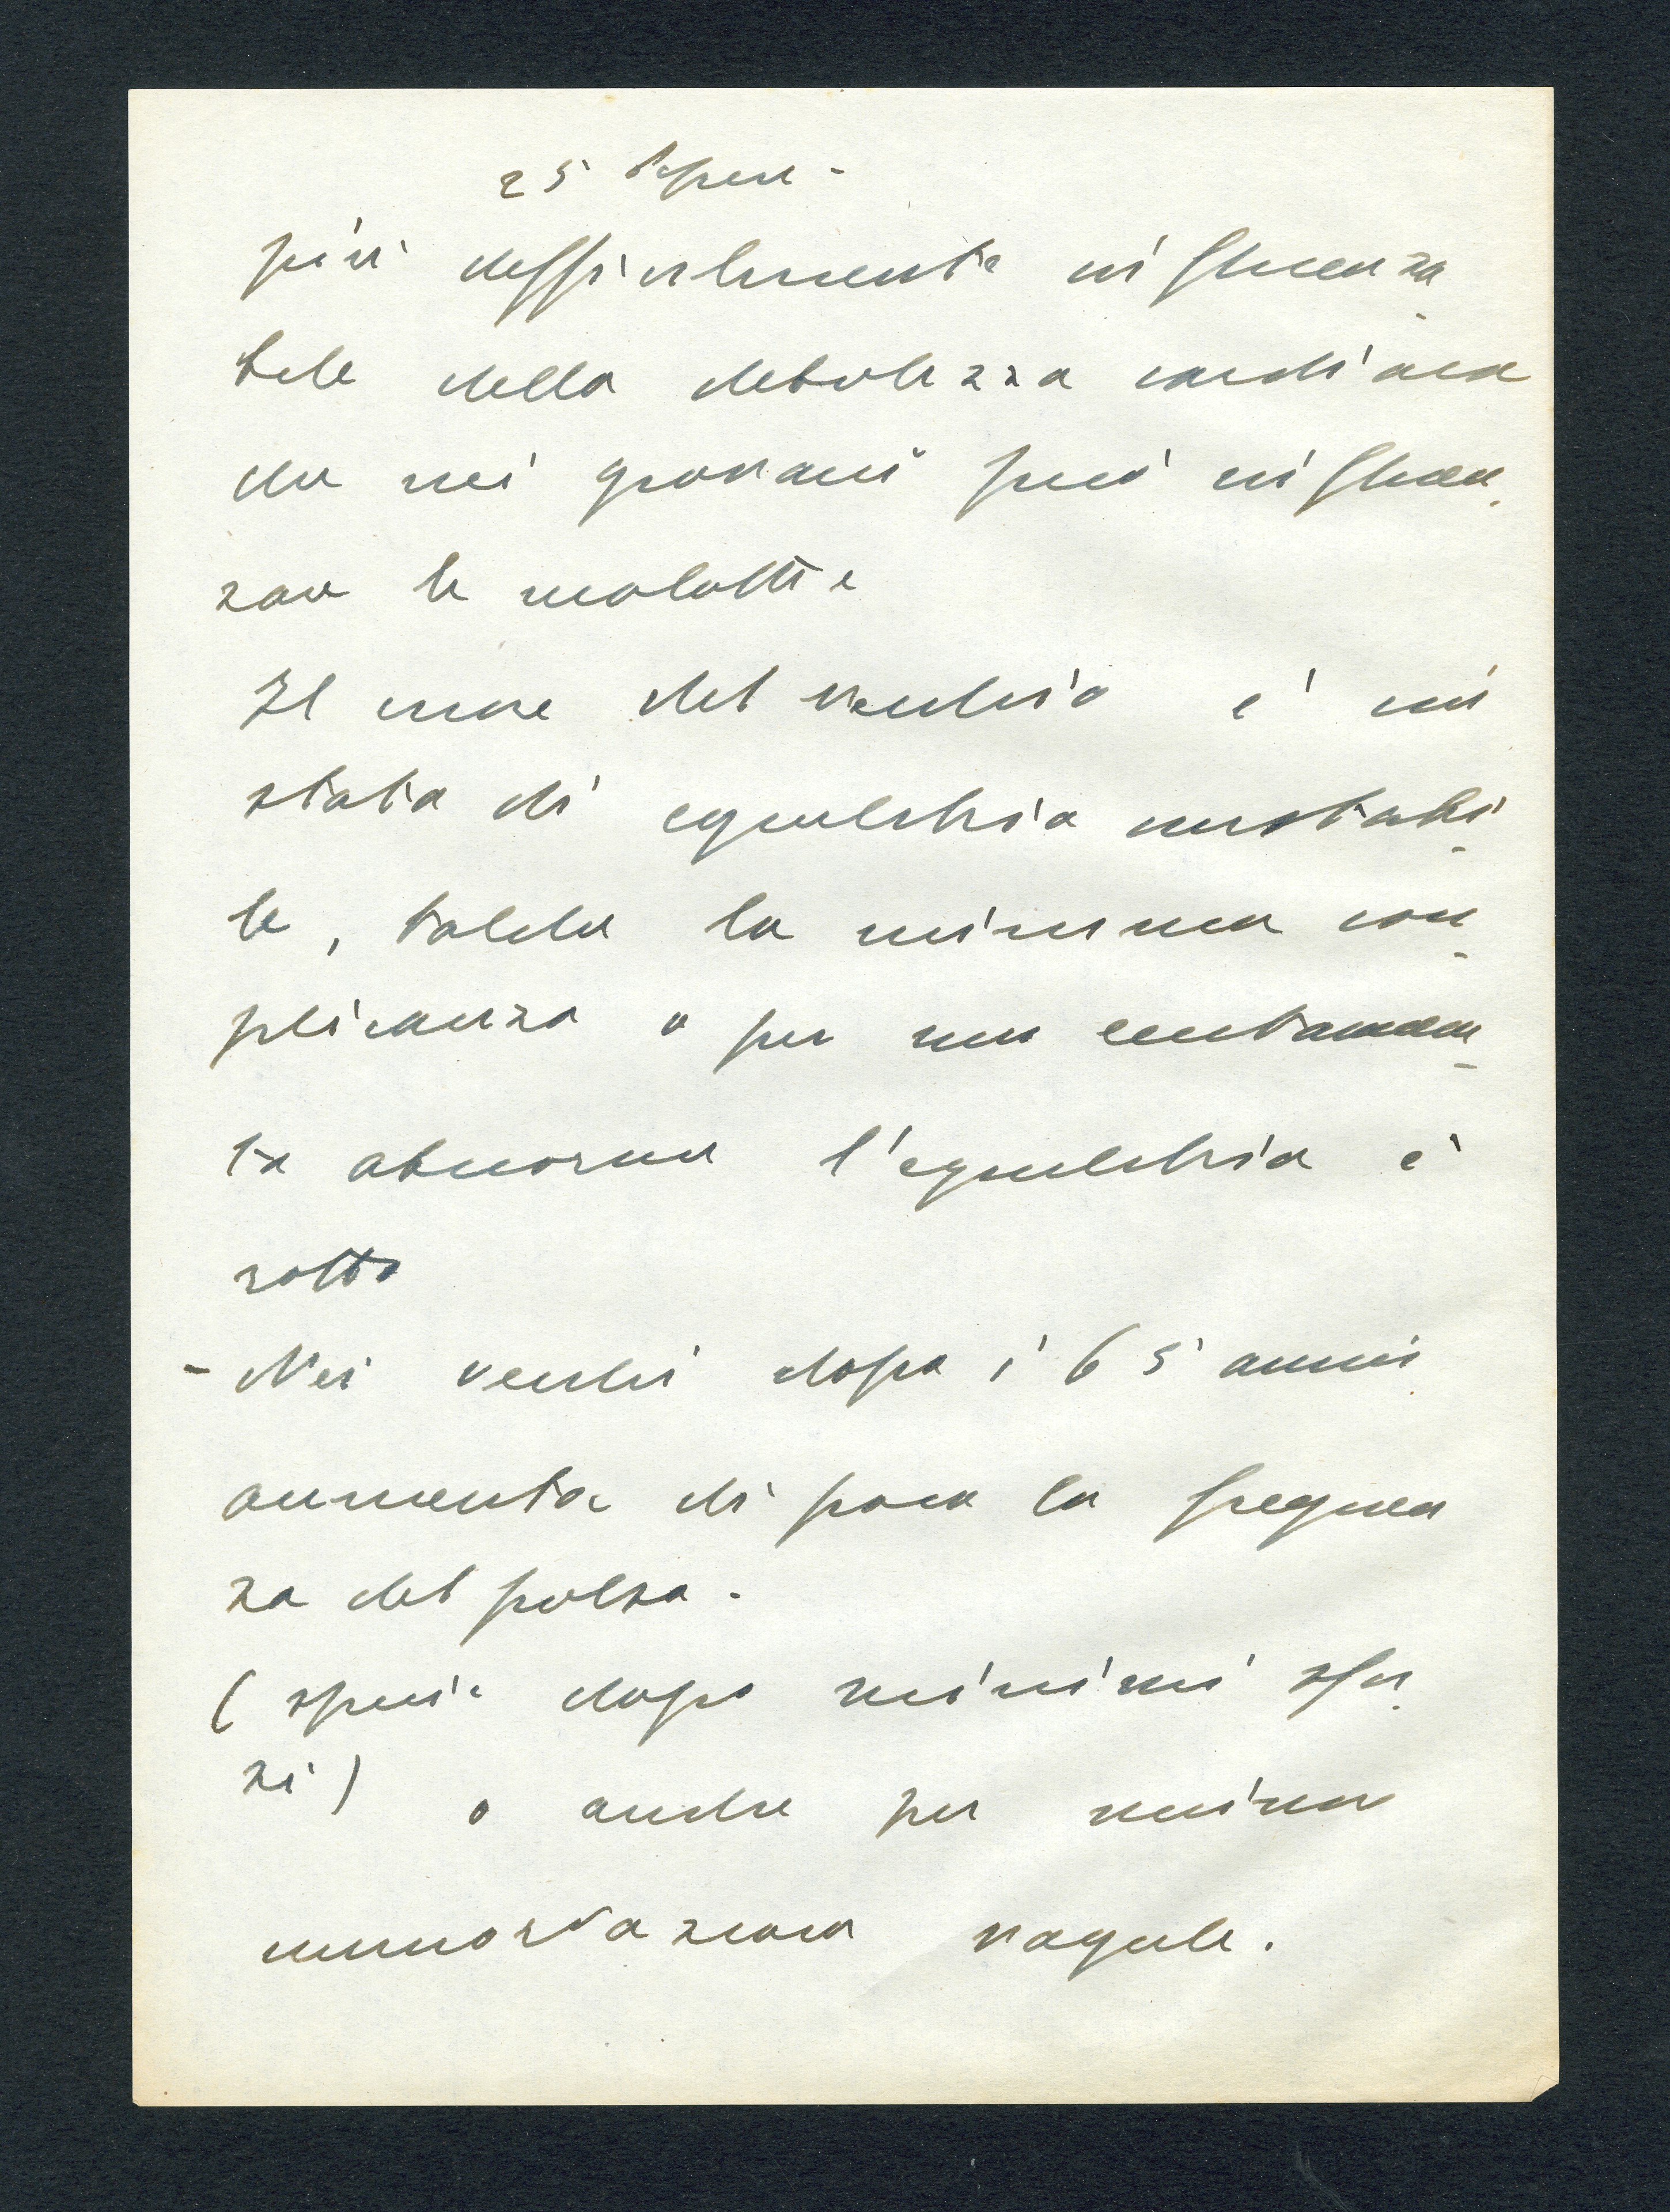 25
più difficilmente influenza
bile della debolezza cardiaca
che nei giovani può influen
zare le malattie
Il cuore del vecchio è in
stato di equilibrio instabi
le, talche la minima com
plicanza o per un
to abnorme l'equilibrio è
rotto
- Nei vecchi dopo i 65 anni
aumenta di poco la frequen
za del polso.
( specie dopo minimi sfor
zi) o anche per minor
vagale.